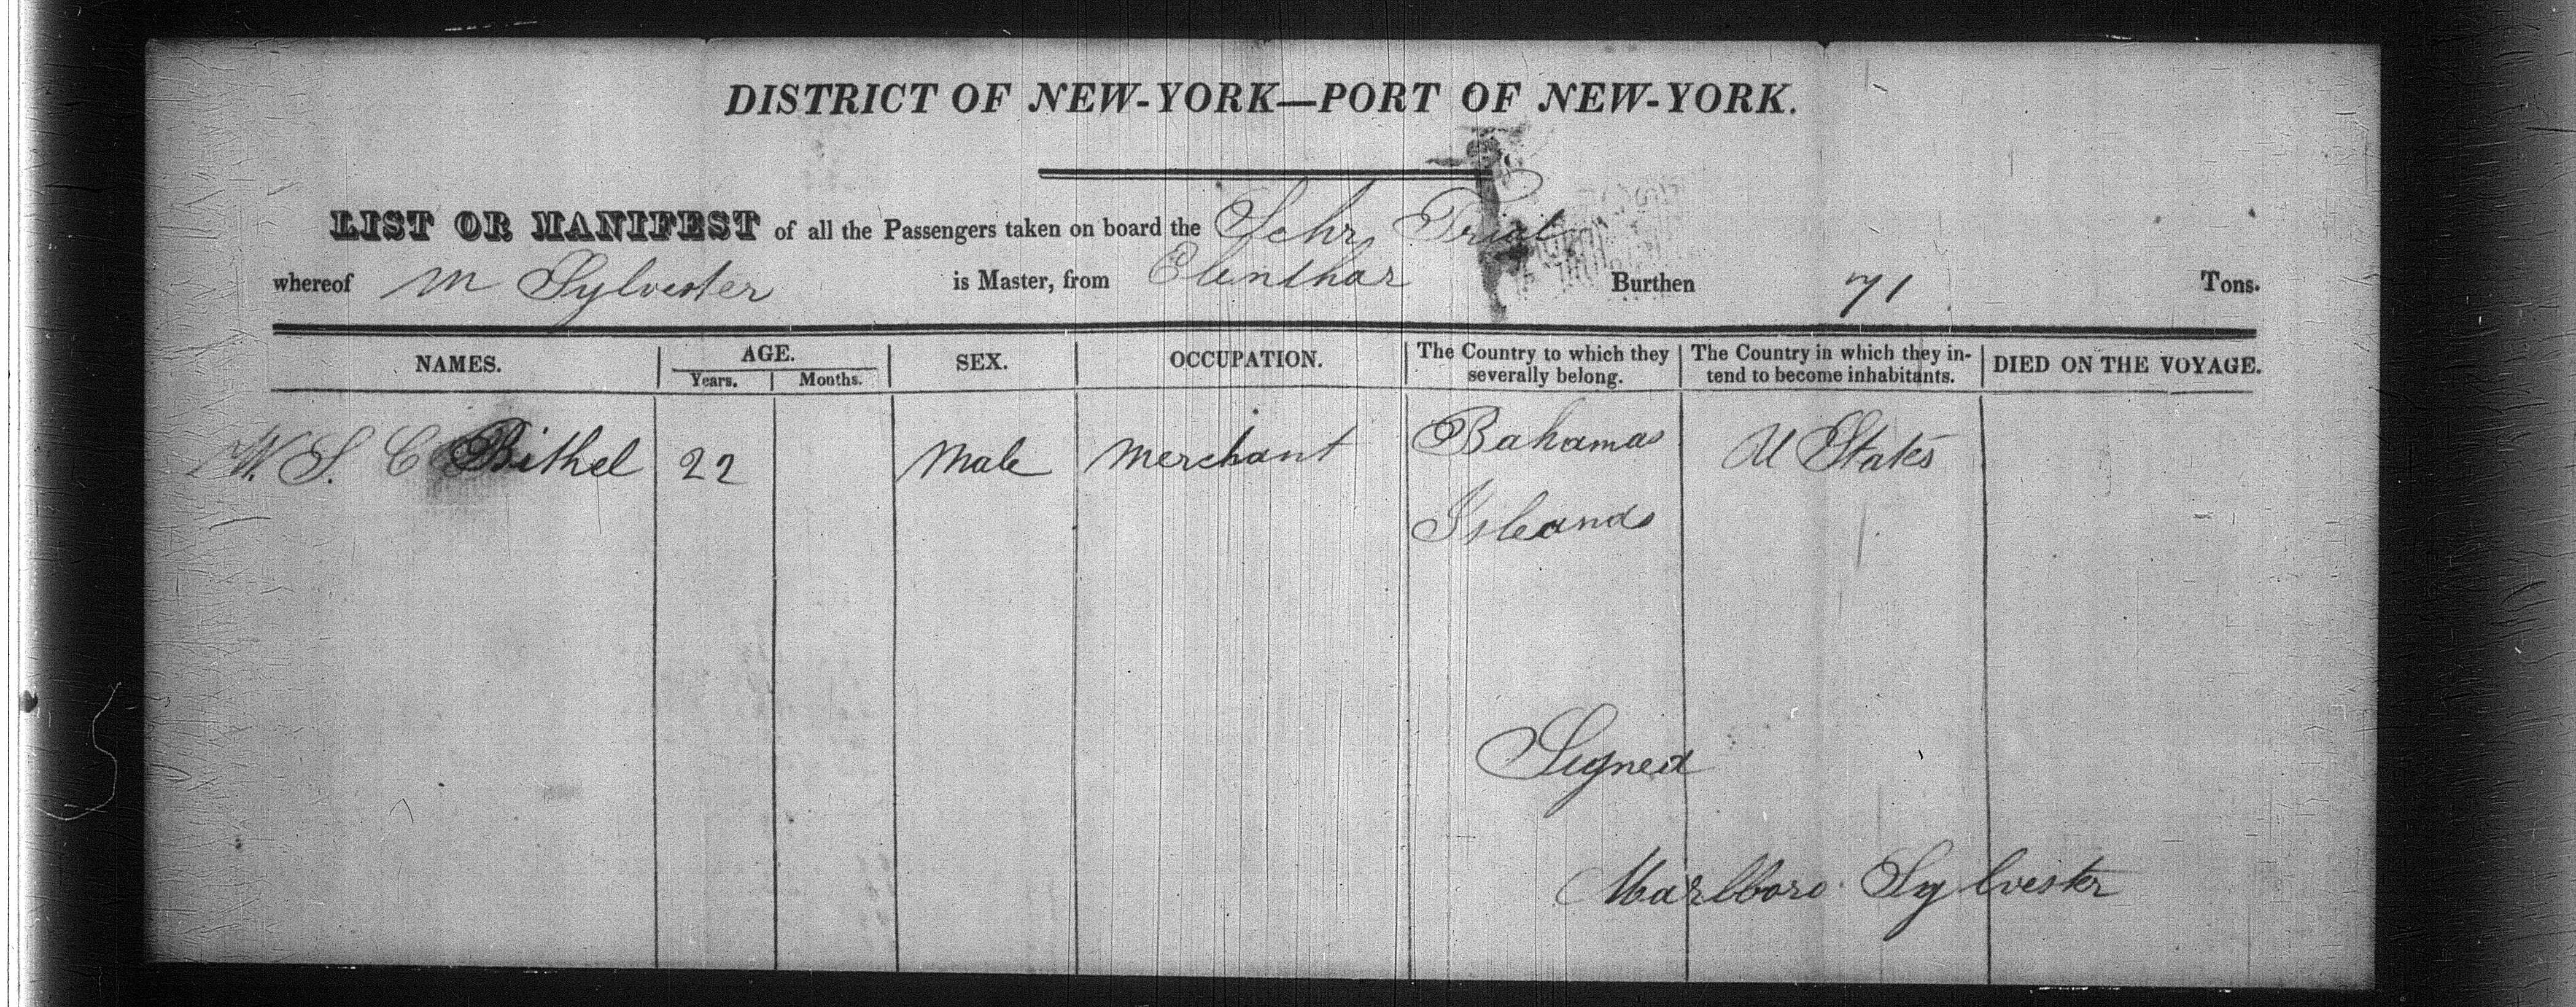 DISTRICT OF NEW-YORK—PORT OF NEW-YORK.
LIST OR MANIFEST of all the Passengers taken on board the Schr Trial
whereof M Sylvester is Master, from Elinthar Burthen 71 Tons.
NAMES. AGE. Years. Months. SEX. OCCUPATION. The Country to which they severally belong. The Country in which they intend to become inhabitants. DIED ON THE VOYAGE.
W. S. C Bithel 22 Male Merchant Bahamas U States
Isleands
Signed
Marlboro Sylvester